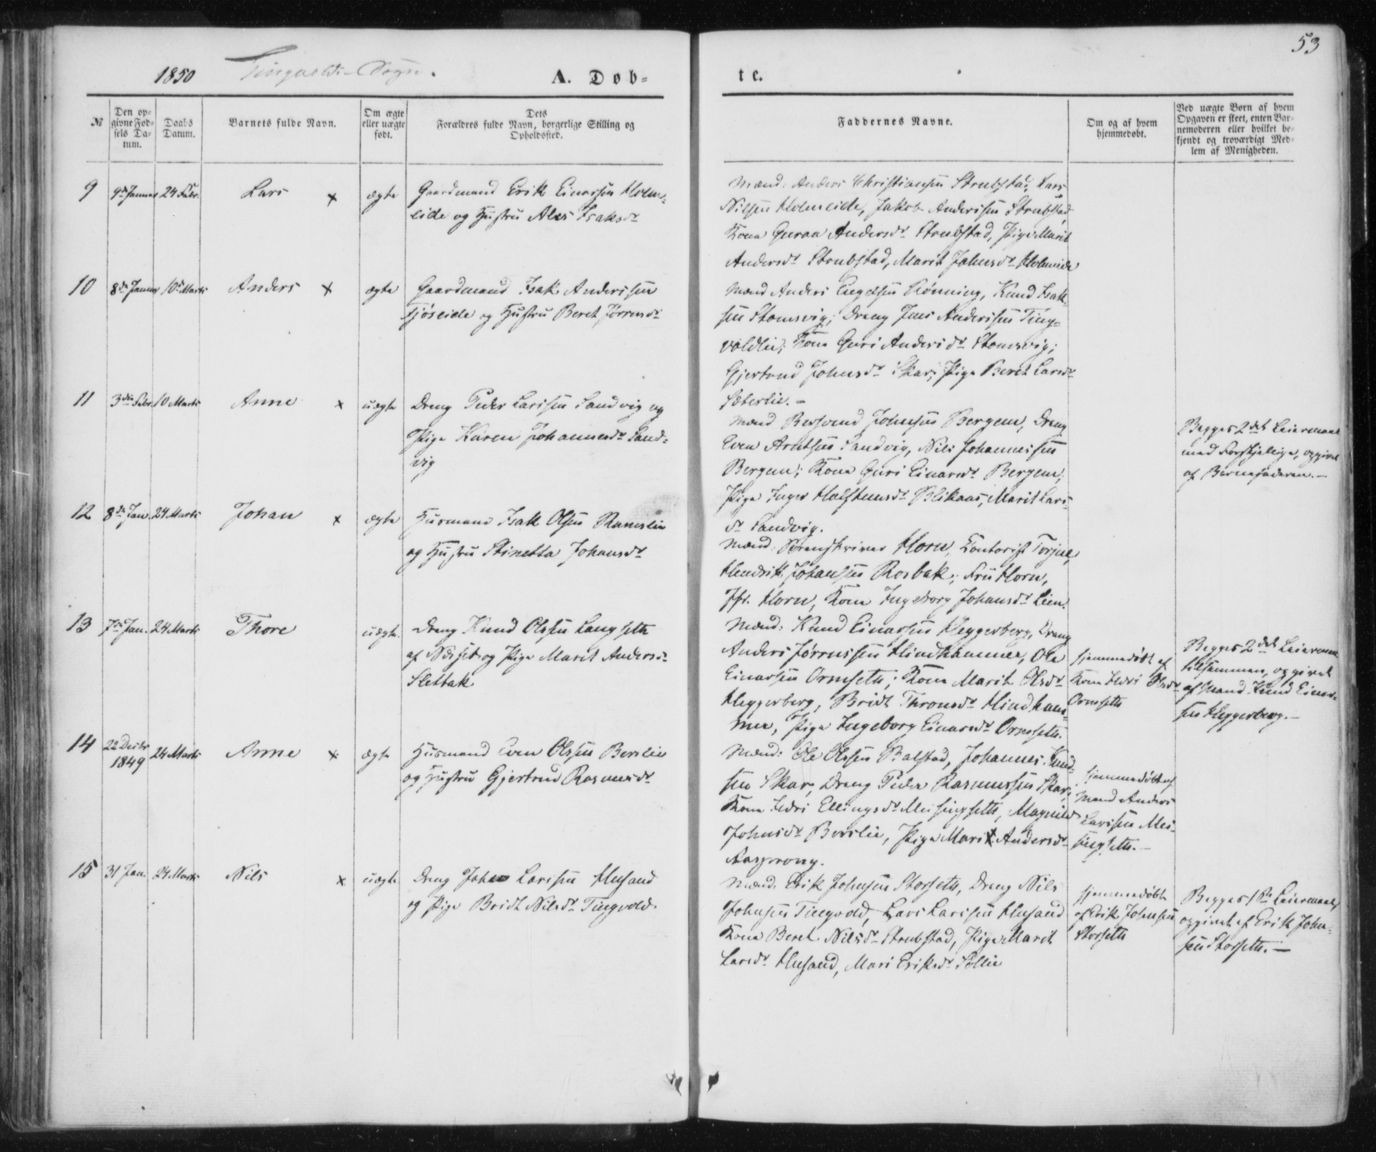 53
1850 Tingvolds Sogn.
A. Døb-
te.
№
Den op-
givne Fød-
sels Da-
tum.
Daabs
Datum.
Barnets fulde Navn.
Om ægte
eller uægte
født.
Dets
Forældres fulde Navn, borgerlige Stilling og
Opholdssted.
Faddernes Navne.
Om og af hvem
hjemmedøbt.
Ved uægte Børn af hvem
Opgaven er skeet, enten Bar-
nemoderen eller hvilket be-
kjendt og troværdigt Med-
lem af Menigheden.
9 9de Januar 24 Febr. Lars x ægte Gaardmand Erik Einarsen Holm-
eide og Hustru Ales Isaksdr
Mænd: Anders Christiansen Strubstad, Lars
Nilsen Holmeide, Jakob Andersen Strubstad,
Kone Guraa Andersdr Strubstad, Pige Marit
Andersdr Strubstad, Marit Johnsdr Holmeide
10 8de Januar 10de Marts Anders x ægte Gaardmand Isak Andersen
Fjøseide og Hustru Beret Jørrensdr
Mænd Anders Hønning, Knud Isak-
sen Stomsvig; Dreng Jens Andersen Ting-
voldlie; Kone Guri Andersdr Stomsvig;
Gjertrud Johnsdr Skar; Pige Beret Larsdr
Sæterlie.-
11 3die Febr. 10 Marts Anne x uægte Dreng Peder Larsen Sandvig og
Pige Karen Johannesdr Sand-
vig
Mænd Johnsen Bergem, Dreng
Even Arntsen Sandvig, Nils Johannessen
Bergem; Kone Guri Einarsdr Bergem;
Pige Inger Halstensdr Blikaas, Marit Lars-
dr Sandvig.
Begges 2det Leiermaal
med Forskjellige, opgivet
af Barnefaderen.-
12 8de Jan. 24 Marts Johan x ægte Husmand Isak Olsen Ramslie
og Hustru Stinetta Johansdr
Mænd: Sorenskriver Horn, Contorist
Hendrik Johansen Rosbak; Fru Horn,
Jfr. Horn, Kone Ingeborg Johansdr Lien.
13 7de Jan. 24 Marts Thore uægte Dreng Knud Olsen Langsette
af Nesset og Pige Marit Andersdr
Slettak
Mænd: Knud Einarsen Heggerberg, Dreng
Anders Jørrensen Hindhammer, Ole
Einarsen Ormsette; Kone Marit Olsdr
Heggerberg, Bridt Thronsdr Hindham-
mer, Pige Ingeborg Einarsdr Ormsette.
Hjemmedøbt af
Kone Sedri Olsdr
Ormsette
Begges 2det Leiermaal
tilsammen, opgivet
af Mand Knud Einar-
sen Heggerberg.-
14 22 Decbr
1849 24 Marts Anne x ægte Husmand Even Olsen Berslie
og Hustru Gjertrud Rasmusdr
Mænd: Ole Olsen Balstad, Johannes Knud-
sen Skar, Dreng Peder Rasmussen Skar;
Kone Sedri Ellingsdr Meisingsette, Magnild
Johnsdr Berslie, Pige Marit Andersdr
Aasprong.
Hjemmedøbt af
Mand Anders
Larsen Mei-
singsette.-
15 31 Jan. 24 Marts Nils x uægte Dreng John Larsen Husand
og Pige Bridt Nilsdr Tingvold.
Mænd: Erik Johnsen Storsette, Dreng Nils
Johnsen Tingvold, Lars Larsen Husand
Kone Beret Nilsdr Strubstad, Pige Marit
Larsdr Husand, Mari Eriksdr Sollie
Hjemmedøbt
af Erik Johnsen
Storsette
Begges 1ste Leiermaal,
opgivet af Erik John-
sen Storsette.-